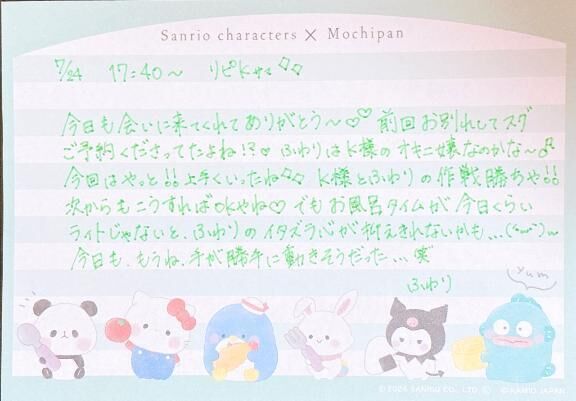 Sanrio characters × Mochipan
7/24 17:40～ リピK様♪♪
今日も会いに来てくれてありがとう～♡♡ 前回お別れしてスグ
ご予約くださってたよね!?♡ ふわりはK様のオキニ嬢なのかな～♪
今回はやっと!!上手くいったね♪♪ K様とふわりの作戦勝ちや!!
次からもこうすればOKやね♡ でもお風呂タイムが今日くらい
ライトじゃないと、ふわりのイタズラ心が抑えきれないかも...
今日も、もうね、手が勝手に動きそうだった... 笑
ふわり
yum
© 2024 SANRIO CO., LTD. © KAMIO JAPAN